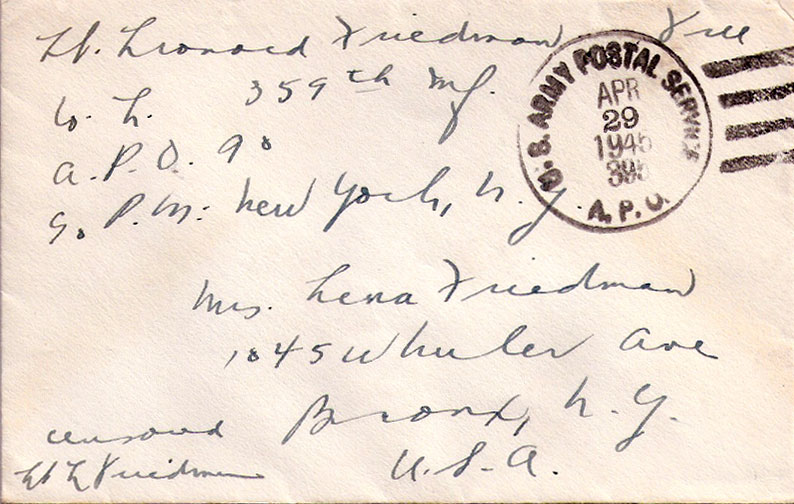 Lt. Leonard Friedman Free
Co. L. 359th Inf.
A.P.O. 90
P.M. New York, N.Y.
U.S. ARMY POSTAL SERVICE
APR
29
1945
395
A.P.O.
Mrs. Lena Friedman
1045 Wheeler Ave
Bronx, N.Y.
U.S.A.
censored
Lt L Friedman